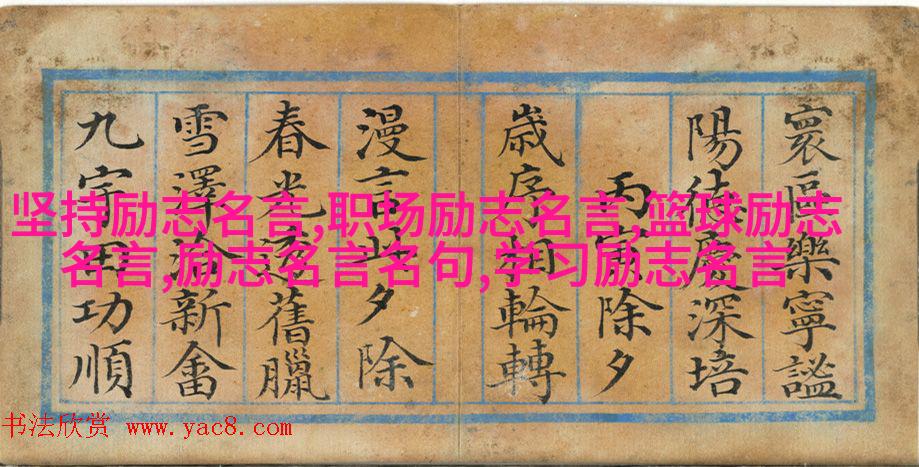 寰區樂寧謐
陽慶深培
丙寅除夕
歲序相輪轉
漫言此夕除
春光透舊臘
雪澤洽新畬
九宇田功順
坚持励志名言,职场励志名言,篮球励志
名言,励志名言名句,学习励志名言
书法欣赏 www.yac8.com